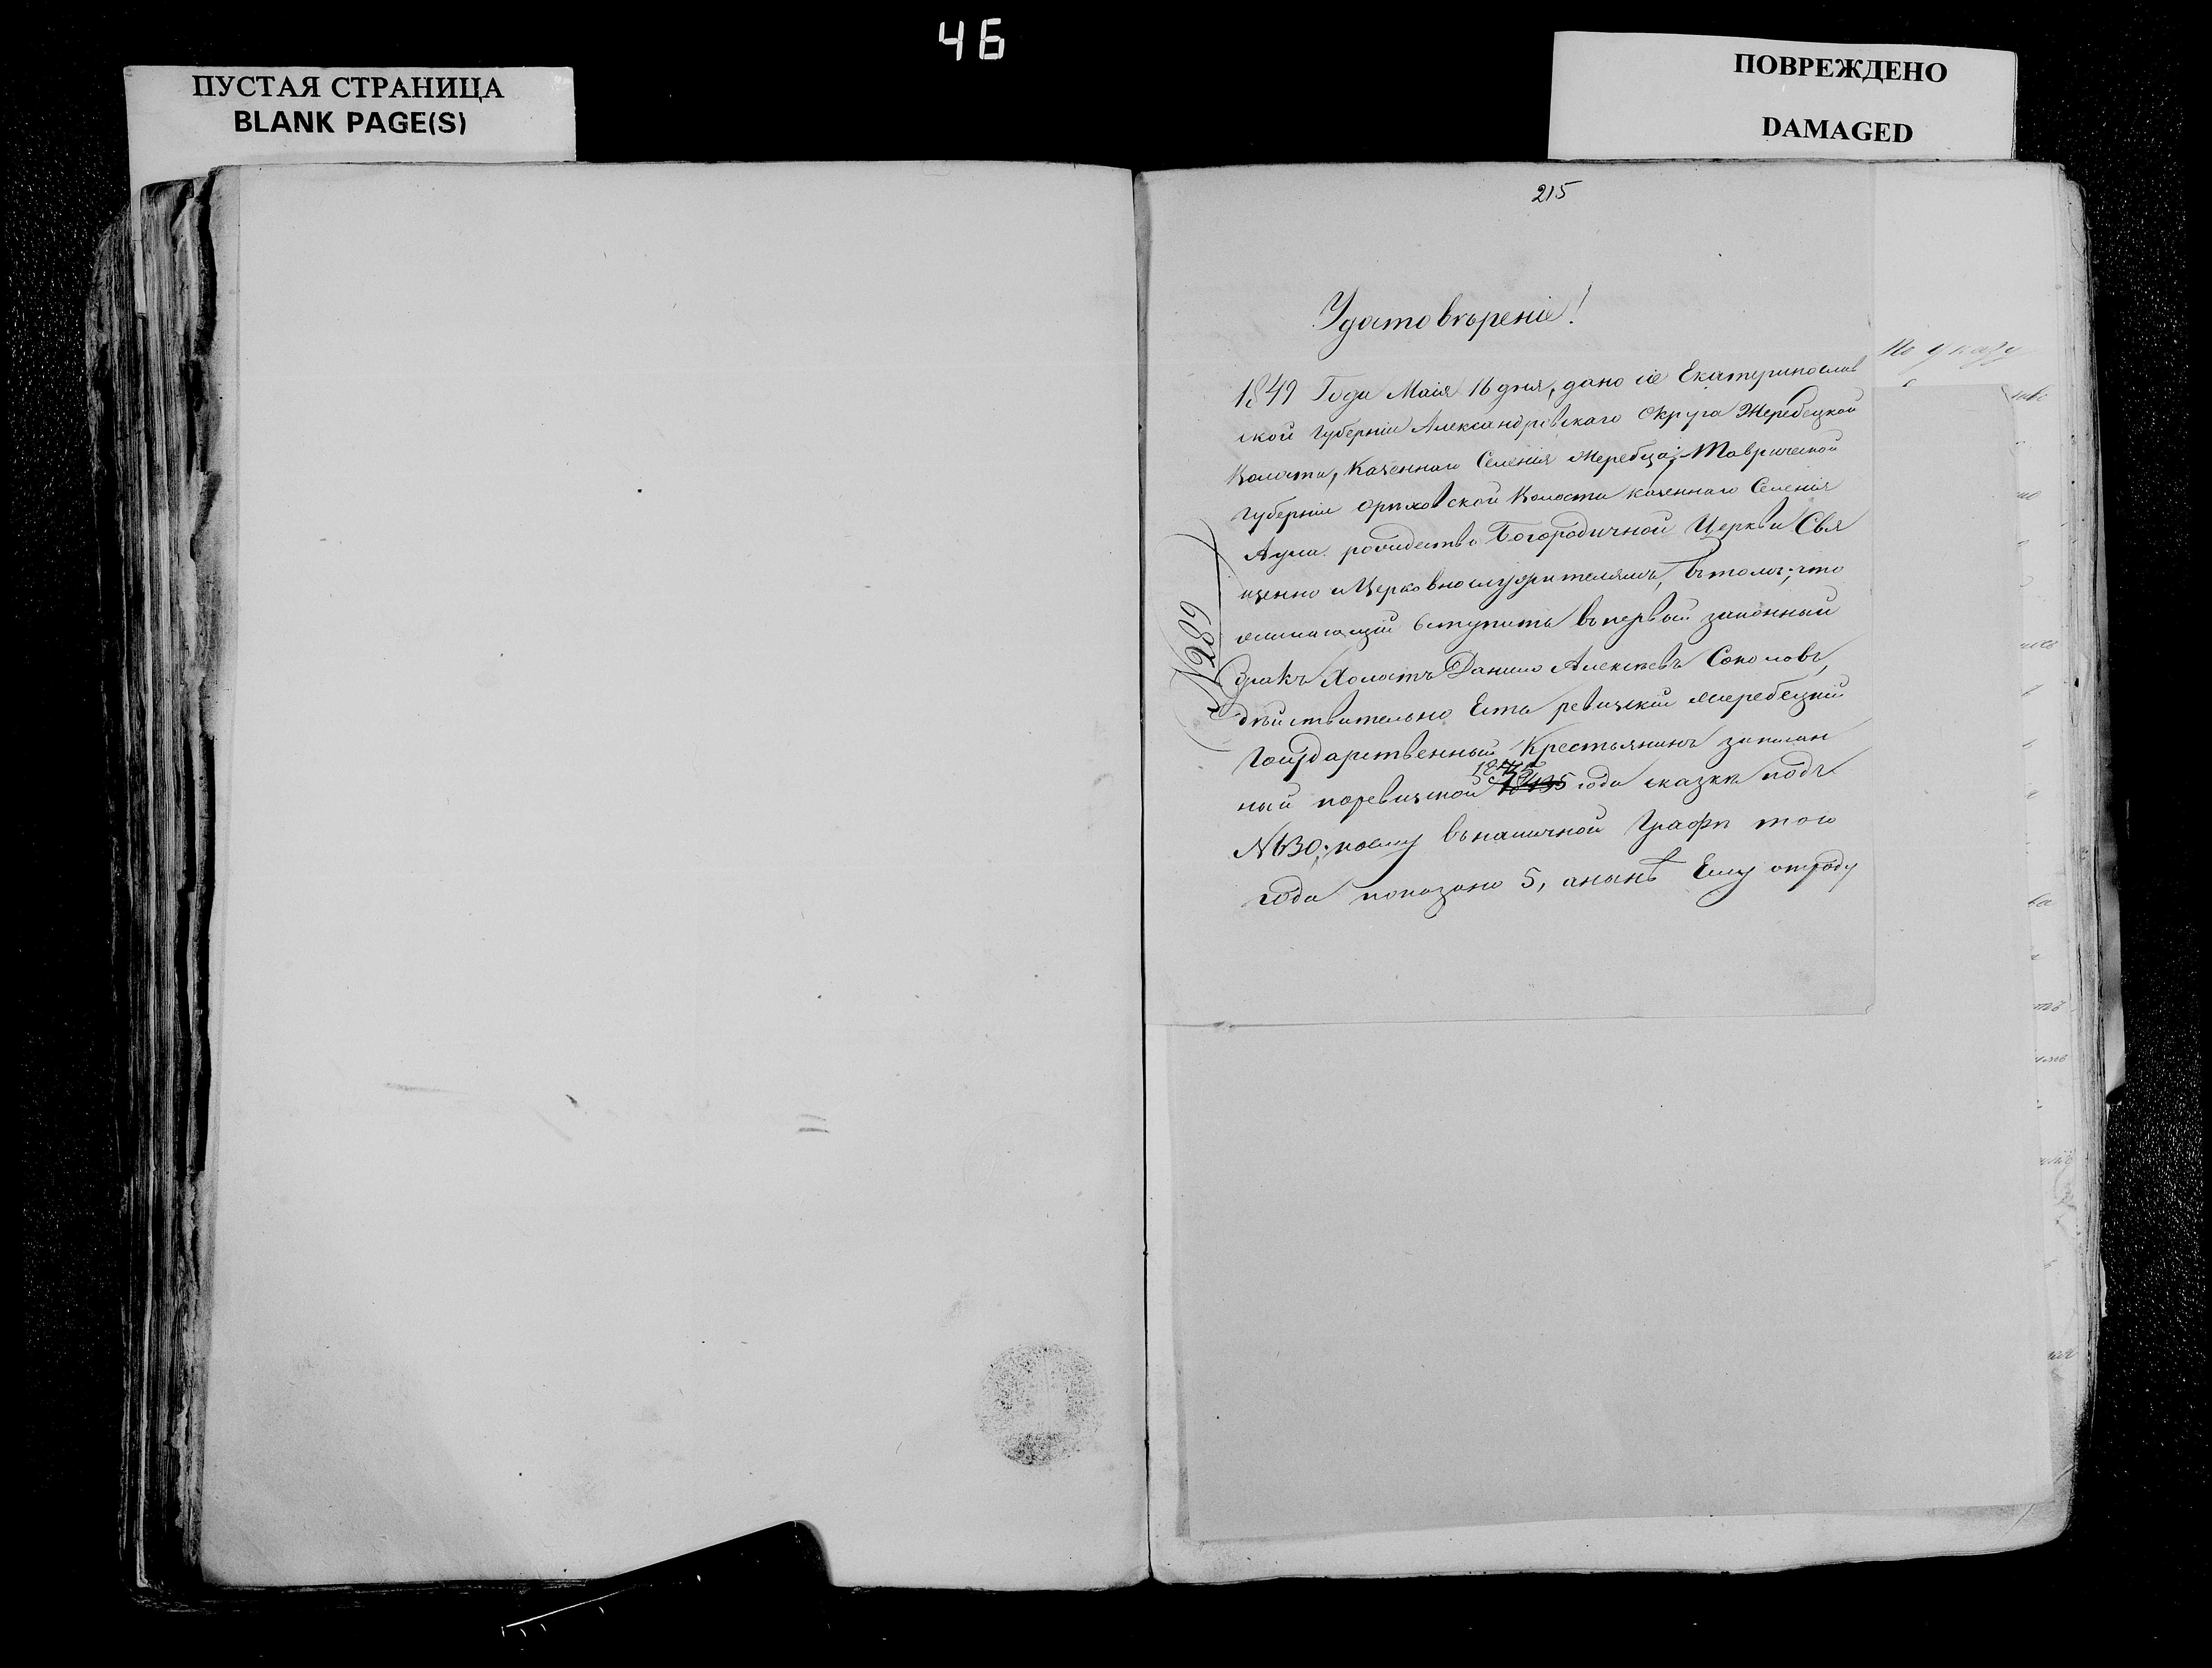 46
ПУСТАЯ СТРАНИЦА
BLANK PAGE(S)
ПОВРЕЖДЕНО
DAMAGED
215
Удостовѣреніе!
1849 Года Маія 16 дня, дано сіе Екатеринослав
ской Губерніи Александровскаго Округа Жеребецкой
Волости, Казеннаго Селенія Жеребца; Таврической
Губерніи Орѣховской Волости казеннаго Селенія
рождество Богородичной Церкви Свя
щенно и Церковнослужителямъ, въ томъ, что
желающій вступить въ первый законный
бракъ Холостъ Данило Алексѣевъ Соколовъ,
дѣйствительно Есть ревизскій жеребецкій
Государственный Крестьянинъ записан
ный по ревизской 1835 года сказкѣ подъ
№ 630, коему въ наличной Графѣ того
года показано 5, а нынѣ Ему отроду
№ 289
По указу